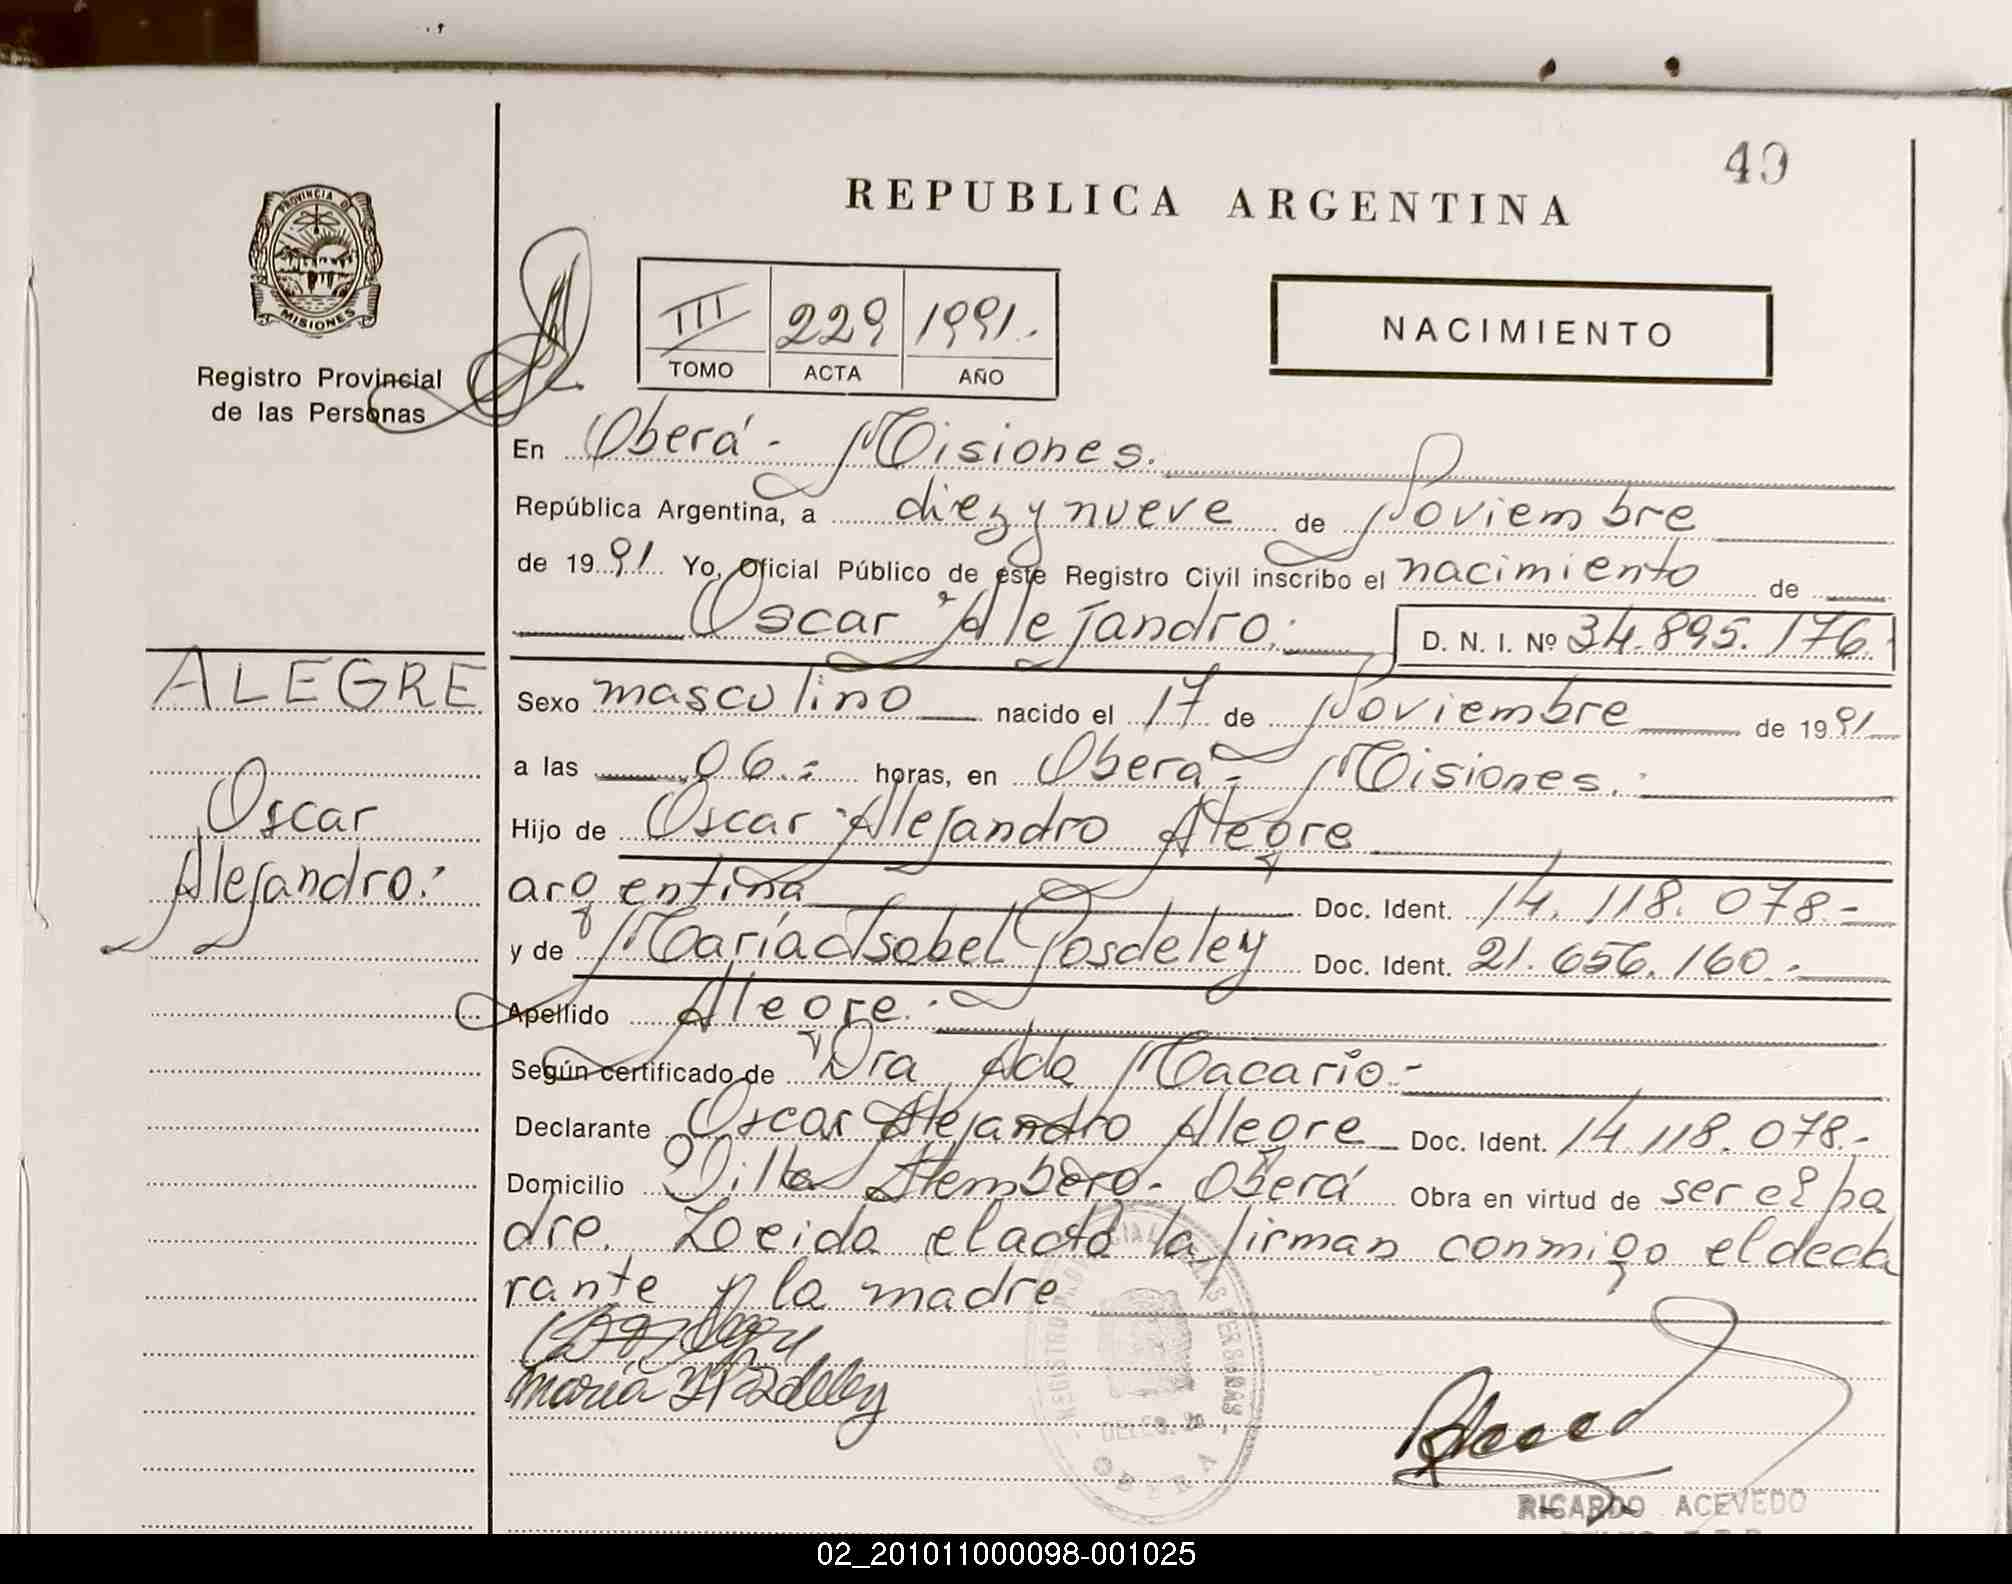 40
REPUBLICA ARGENTINA
PROVINCIA DE
MISIONES
Registro Provincial
de las Personas
III 229 1991.-
TOMO ACTA AÑO
NACIMIENTO
En Oberá - Misiones.
República Argentina, a diez y nueve de Noviembre
de 1991 Yo, Oficial Público de este Registro Civil inscribo el nacimiento de
Oscar Alejandro.- D. N. I. Nº 34.895.176.
ALEGRE
Oscar
Alejandro.-
Sexo masculino nacido el 17 de Noviembre de 1991
a las 06.- horas, en Oberá - Misiones.-
Hijo de Oscar Alejandro Alegre
argentina Doc. Ident. 14.118.078.-
y de María Isabel Posdeley Doc. Ident. 21.656.160.-
Apellido Alegre.-
Según certificado de Dra Ada Macario.-
Declarante Oscar Alejandro Alegre Doc. Ident. 14.118.078.-
Domicilio Villa Stemberg - Oberá Obra en virtud de ser el pa
dre. Leida el acta la firman conmigo el decla
rante y la madre
María I Posdeley
REGISTRO PROVINCIAL DE LAS PERSONAS
OBERA
RICARDO ACEVEDO
02_201011000098-001025